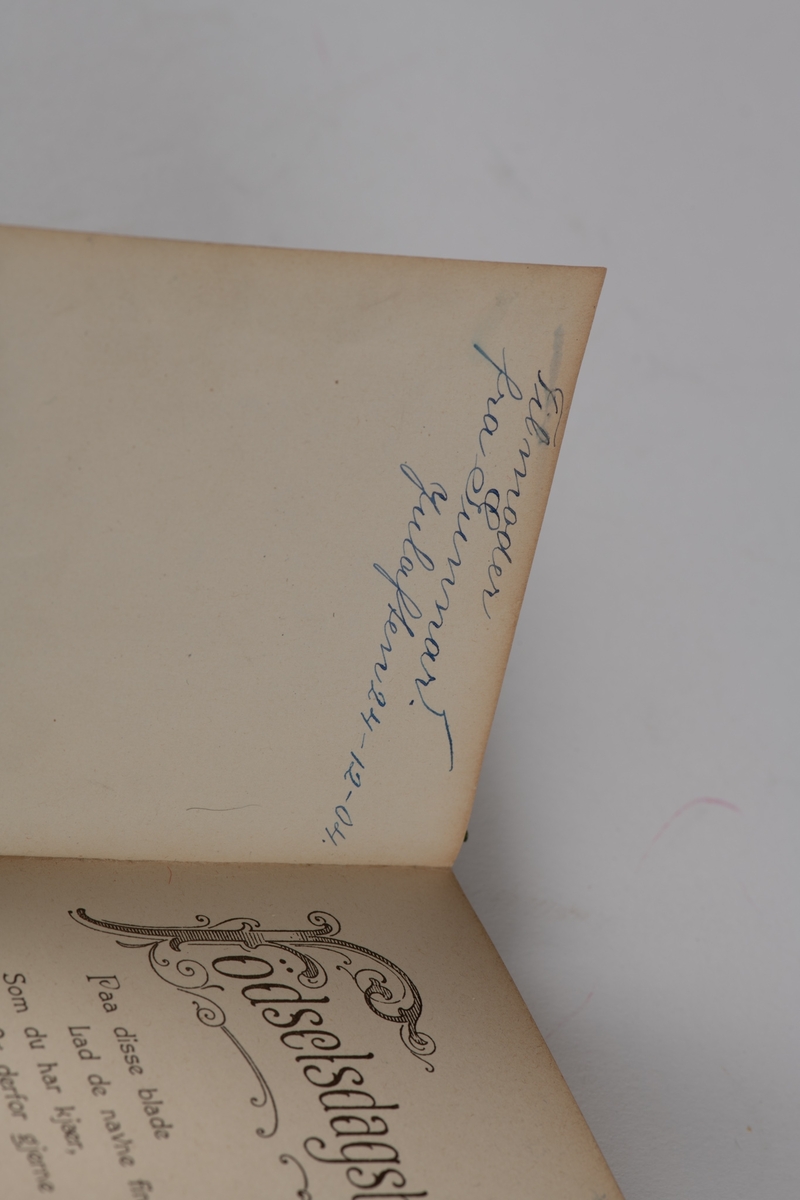 Til moder
fra Gunnar
Julaften 24-12-04.
Födselsdags
Paa disse blade
Lad de navne
Som du har kjær,
derfor gjerne